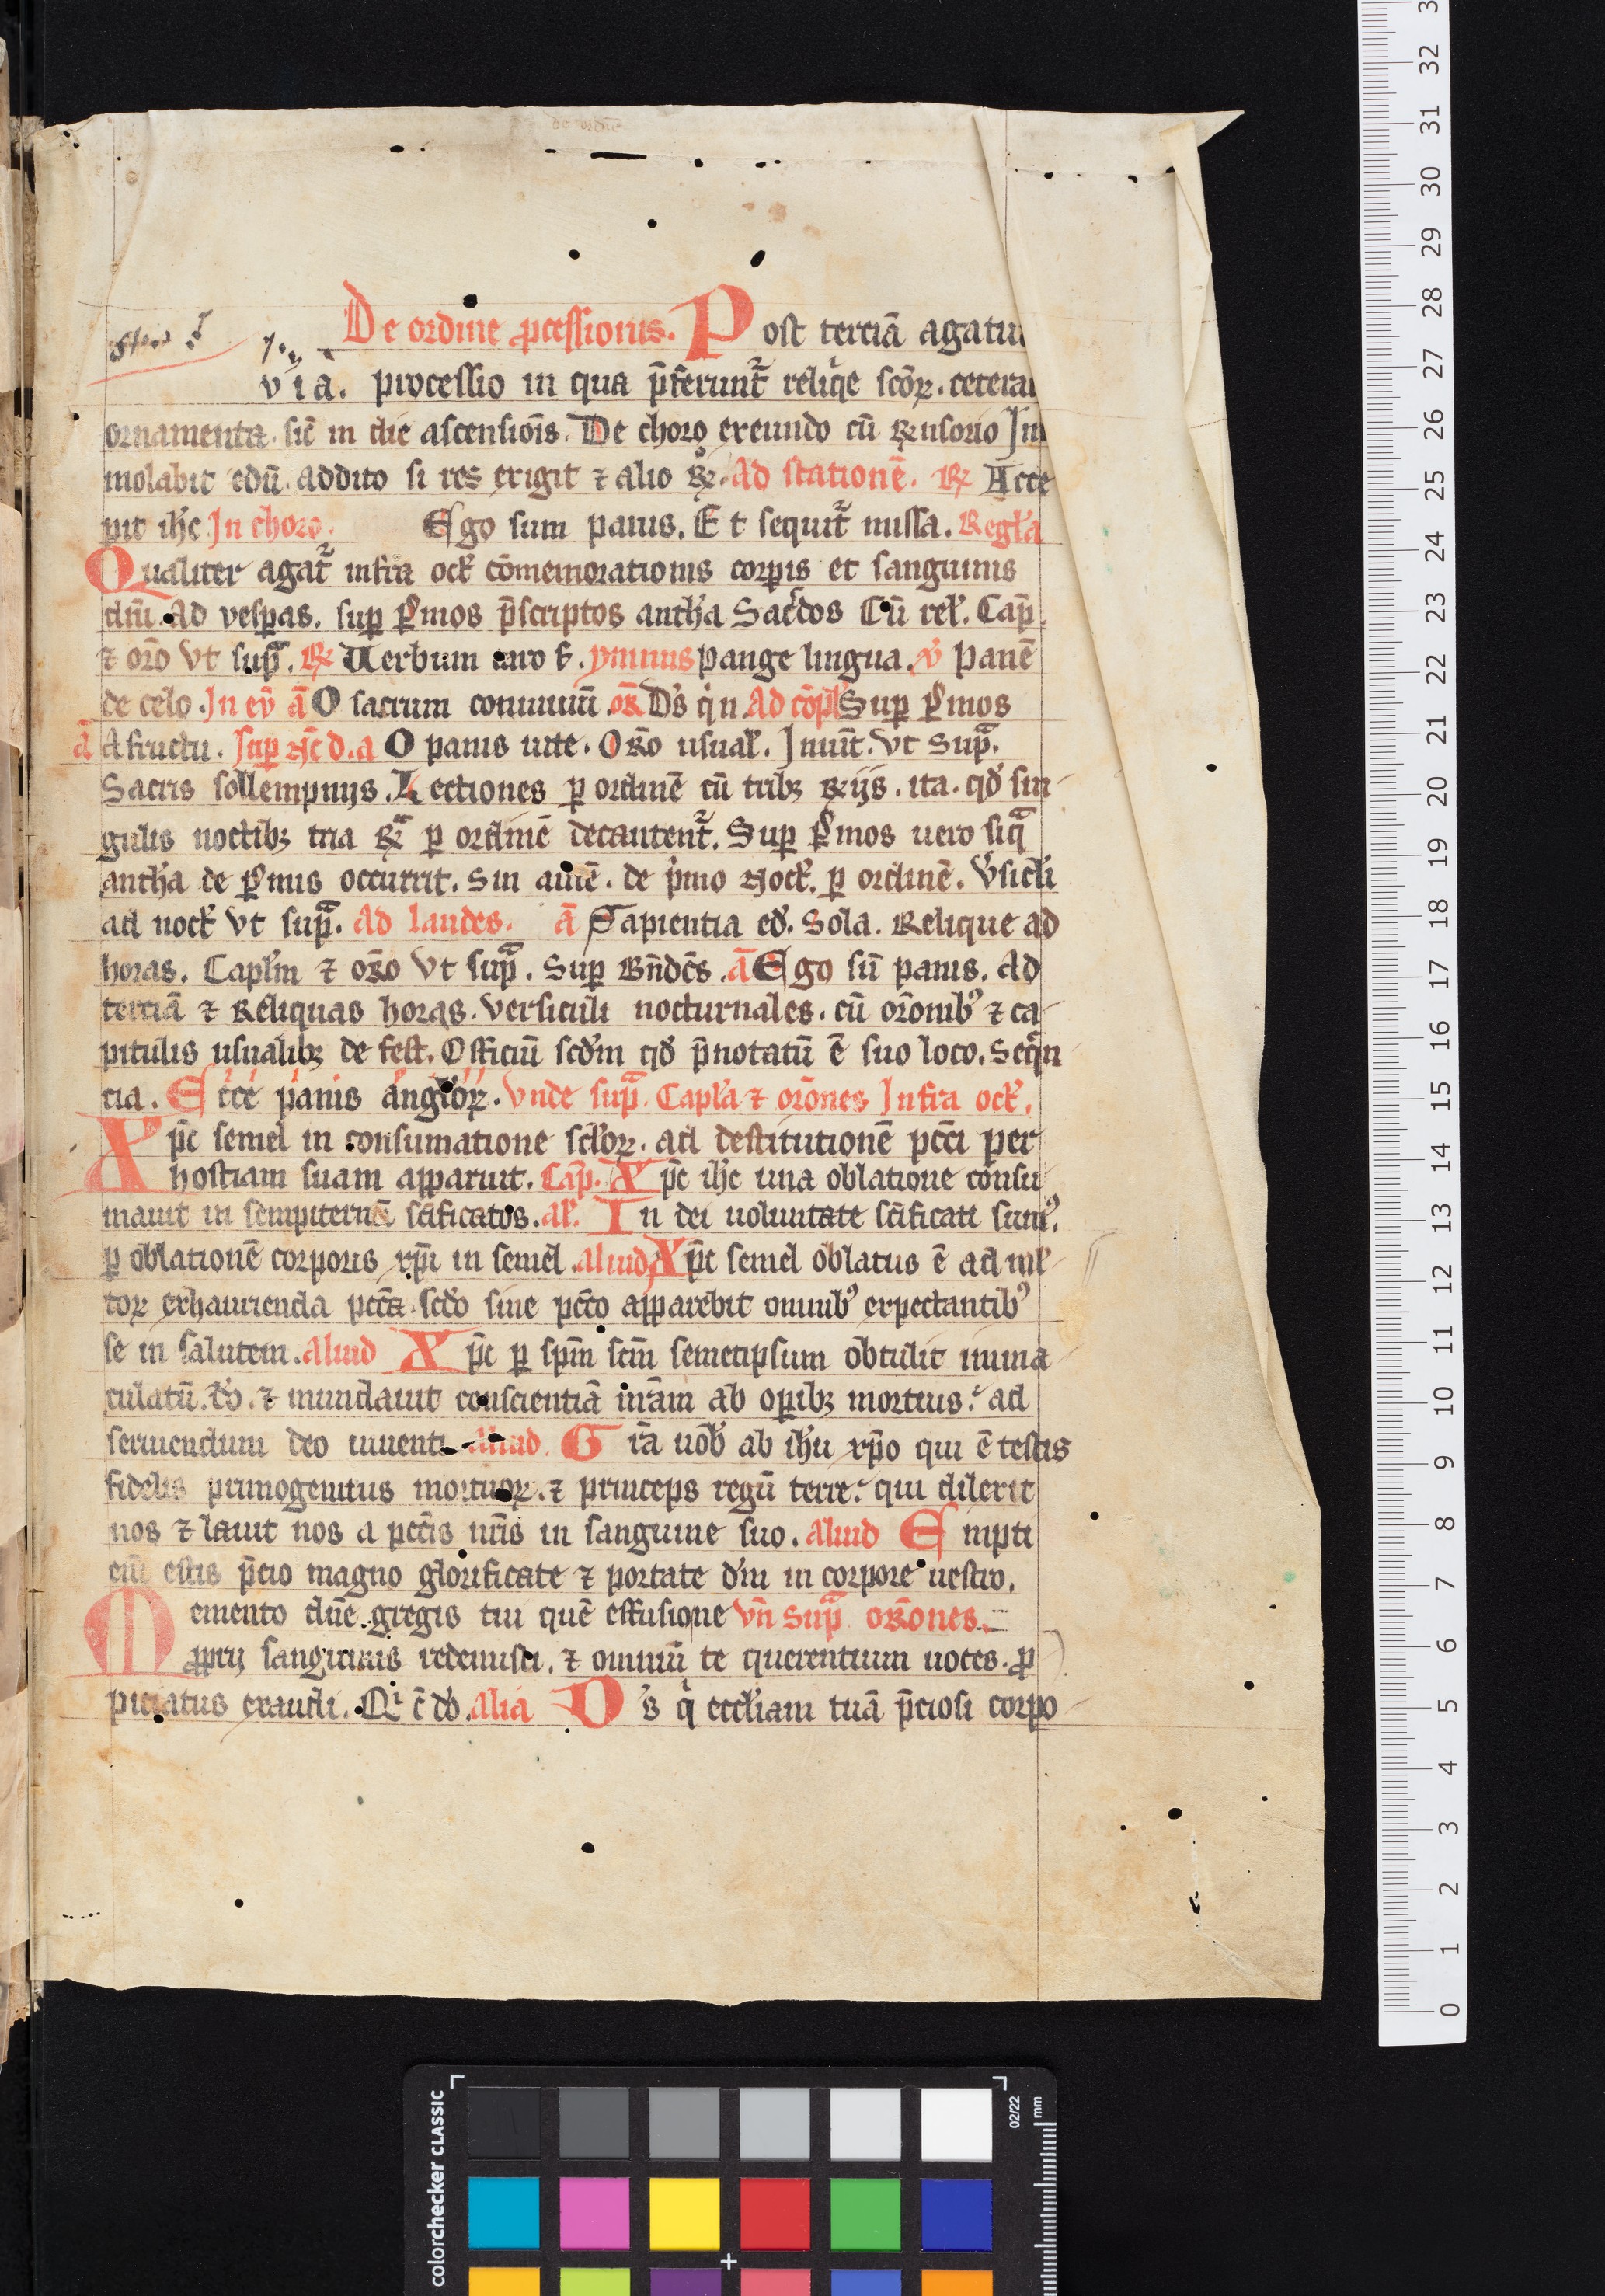 De ordine ꝓcessionis. Post terciā agatur
via. processio in qua p̄ferunt᷑ reliq̄e sc̄oꝝ. cetera
ornamenta. sic̄ in die ascensiōis. De choro exeundo cū ℞nsorio Im
molabit edū. addito si res exigit ⁊ alio ℞º. Ad stationē. ℞ Acce
pit ih̄c In choro. Ego sum panis. Et sequit᷑ missa. Regl̄a
Qualiter agat᷑ infra oct̄ cōmemorationis corꝑis et sanguinis
dn̄i. Ad vesꝑas. suꝑ p̄smos p̄scriptos anth̄a Sac̄dos Cū rel̄. Cap̄.
⁊ or̄o vt supᷓ. ℞ Uerbum caro f̄. ymnus Pange lingua. v̄ Panē
de celo. In ev̄ ā O sacrum conuiuiū. or̄ Ds̄ q̄ n. Ad cōpl̄ Suꝑ p̄smos
ā A fructu. Suꝑ Nc̄ d. a O panis uite. Or̄o usual̄. Inuit̄. vt supᷓ.
Sacris sollempnijs. Lectiones ꝑ ordinē cū tribꝫ ℞ijs. ita. qd̄ sin
gulis noctibꝫ tria ℞ᷓ ꝑ ordinē decantent᷑. Suꝑ p̄smos uero siqᷓ
anth̄a de p̄smis occurrit. Sin autē. de p̄mo Noct̄. ꝑ ordinē. V̄sicl̄i
ad noct̄ vt supᷓ. Ad laudes. ā Sapientia ed̄. Sola. Relique ad
horas. Capl̄m ⁊ or̄o vt supᷓ. Suꝑ Bn̄dc̄s. ā Ego sū panis. Ad
terciā ⁊ Reliquas horas. versiculi nocturnales. cū or̄onibꝰ ⁊ ca
pitulis usualibꝫ de fest̄. Officiū scd̄m qd̄ p̄notatū ē suo loco. Seq̄n
cia. Ecce panis angl̄oꝝ. Vnde supᷓ. Capl̄a ⁊ or̄ones Infra oct̄.
Xp̄c semel in consumatione sc̄loꝝ. ad destitutionē pcc̄i per
hostiam suam apparuit. Cap̄. Xp̄c ih̄c una oblatione consu
mauit in sempiternū sc̄ificatos. al̄. In dei uoluntate sc̄ificati sumꝰ.
ꝑ oblationē corporis xp̄i in semel. Aliud Xp̄c semel oblatus ē ad ml̄
toꝝ exhaurienda pcc̄a. scd̄o sine pcc̄o apparebit omnibꝰ expectantibꝰ
se in salutem. Aliud Xp̄c ꝑ sp̄m sc̄m semetipsum obtulit inma
culatū. d̄o. ⁊ mundauit conscientiā nr̄am ab oꝑibꝫ mortuis. ad
seruiendum deo uiuenti. Aliud. Gr̄a uob̄ ab ih̄u xp̄o qui ē testis
fidelis primogenitus mortuoꝝ. ⁊ princeps regū terre. qui dilexit
nos ⁊ lauit nos a pcc̄is nr̄is in sanguine suo. Aliud Empti
enī estis p̄cio magno glorificate ⁊ portate dm̄ in corpore uestro.
Memento dn̄e gregis tui quē effusione Vn̄ supᷓ or̄ones.
ꝓprij sanguinis redemisti. ⁊ omniū te querentium uoces. ꝓ
piciatus exaudi. Qi c̄ d̄o. Alia Ds̄ q̄ eccl̄iam tuā p̄ciosi corpo